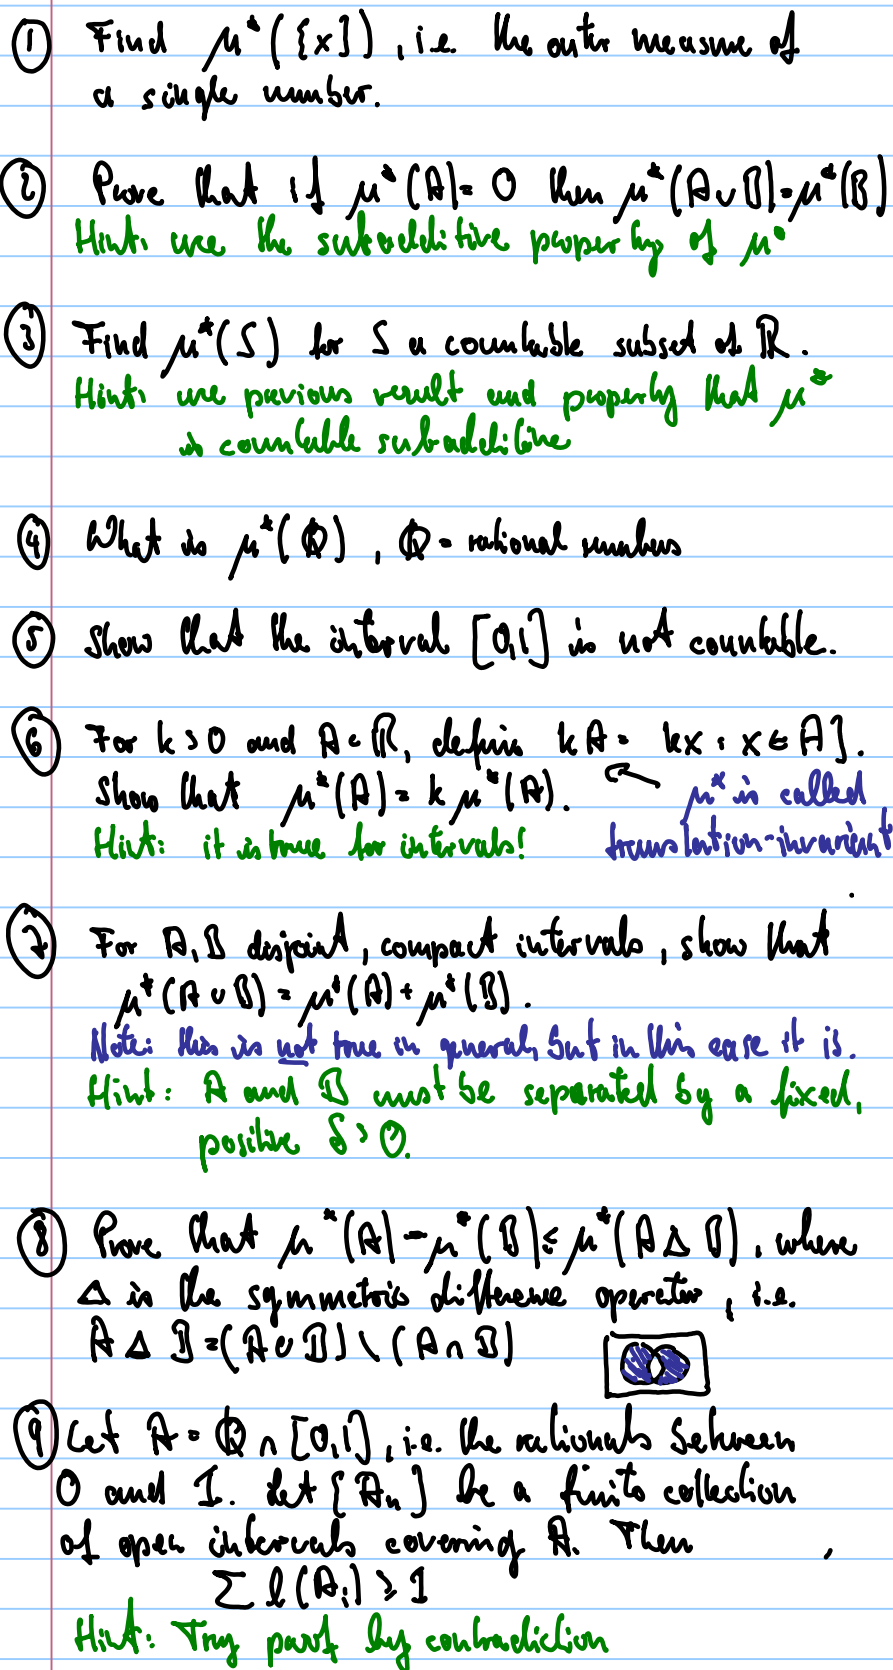 ① Find μ*({x}), i.e. the outer measure of
a single number.
② Prove that if μ*(A) = 0 then μ*(A ∪ B) = μ*(B)
Hint: use the subadditive property of μ*
③ Find μ*(S) for S a countable subset of ℝ.
Hint: use previous result and property that μ*
is countable subadditive
④ What is μ*(ℚ), ℚ = rational numbers
⑤ Show that the interval [0,1] is not countable.
⑥ For k > 0 and A ⊂ ℝ, define kA = kx : x ∈ A}.
Show that μ*(A) = k μ*(A). ← μ* is called
Hint: it is true for intervals! translation-invariant
⑦ For A, B disjoint, compact intervals, show that
μ*(A ∪ B) = μ*(A) + μ*(B).
Note: this is not true in general, but in this case it is.
Hint: A and B must be separated by a fixed,
positive δ > 0.
⑧ Prove that μ*(A) - μ*(B) ≤ μ*(A Δ B), where
Δ is the symmetric difference operator, i.e.
A Δ B = (A ∪ B) \ (A ∩ B)
⑨ Let A = ℚ ∩ [0,1], i.e. the rationals between
0 and 1. Let {An} be a finite collection
of open intervals covering A. Then
Σ l(Ai) ≥ 1
Hint: Try proof by contradiction